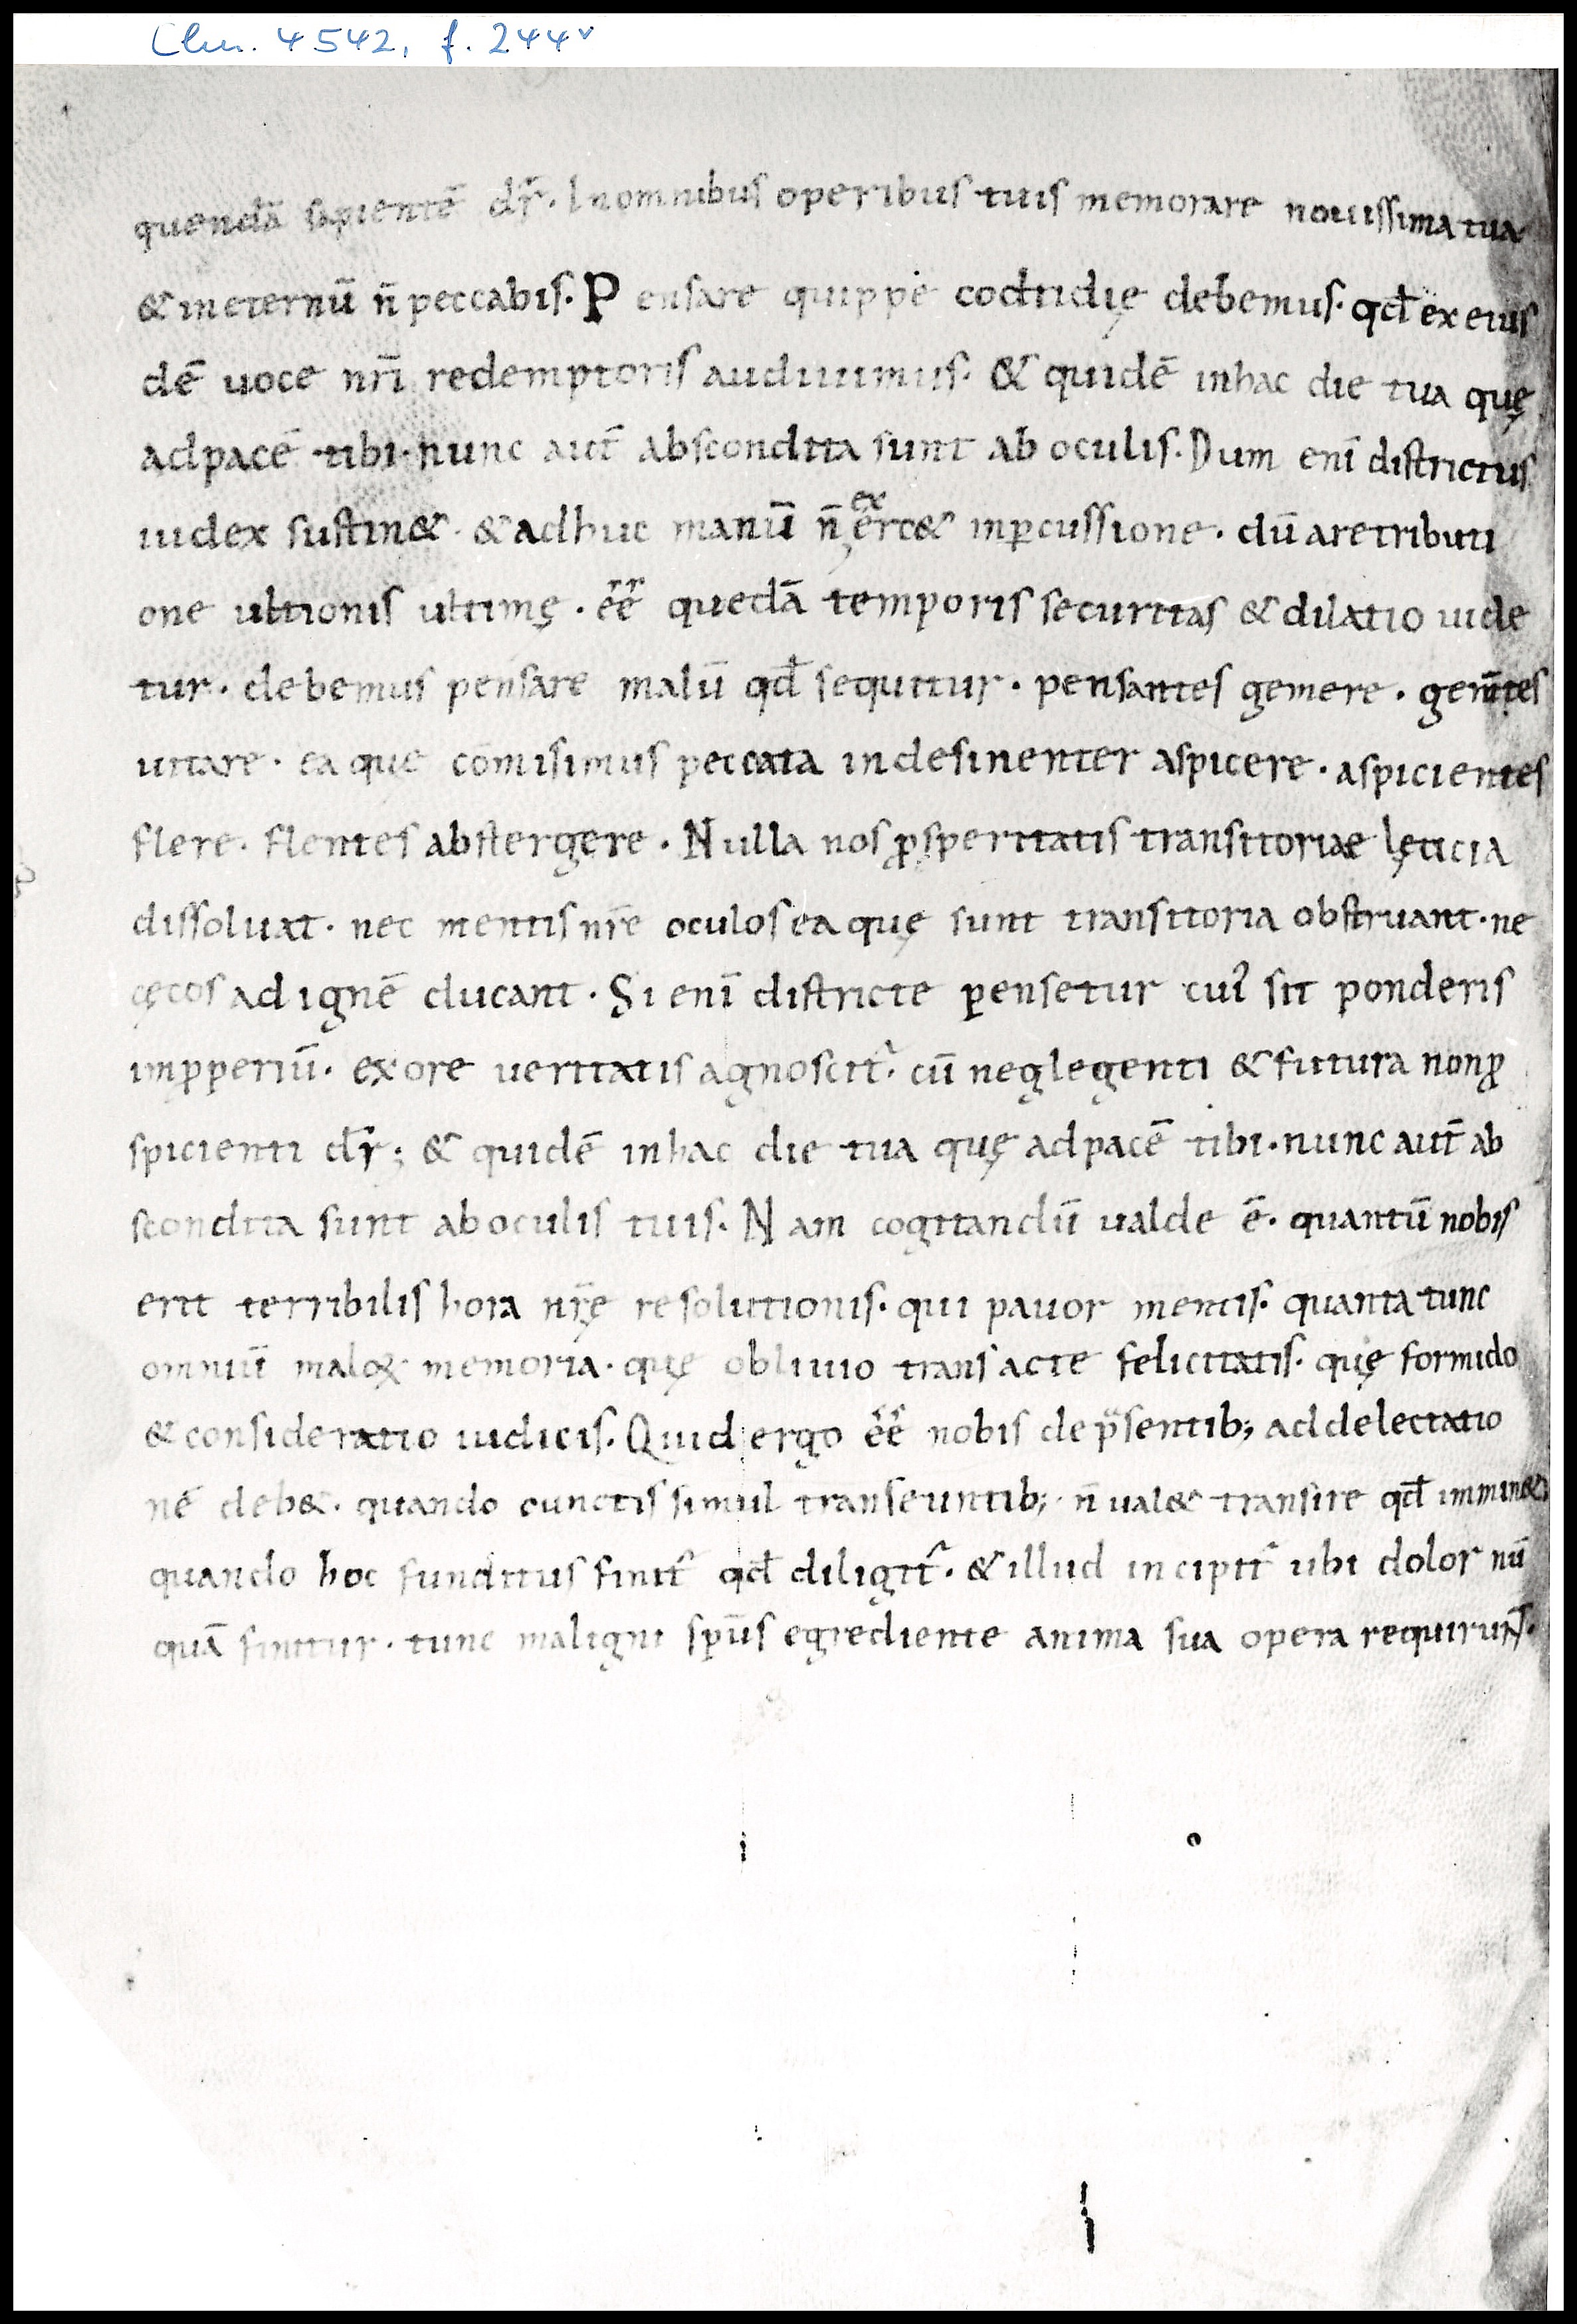 Clm. 4542, f. 244v
quendā sapientē dr̄. Inomnibus operibus tuis memorare nouissima tua
& ineternū n̄ peccabis. Pensare quippe cotidię debemus. qđ exeius
dē uoce nr̄i redemptoris audiuimus. & quidē inhac die tua quę
adpacē tibi. nunc aut̄ abscondita sunt ab oculis. Dum enī districtus
iudex sustin& . & adhuc manū n̄ exerc& inꝑcussione. dū aretributi
one ultionis ultimę. eē quedā temporis securitas & dilatio uide
tur. debemus pensare malū qđ sequitur. pensantes gemere. gem̄tes
uitare. ea que comisimus peccata indesinenter aspicere. aspicientes
flere. flentes abstergere. Nulla nos ꝓsperitatis transitoriae lęticia
dissoluat. nec mentis nr̄e oculos ea quę sunt transitoria obstruant. ne
cęcos ad ignē ducant. Si enī districte pensetur cuı᷒ sit ponderis
inꝓperiū. exore ueritatis agnoscit᷑. cū neglegenti & futura nonꝓ
spicienti dr̄; & quidē inhac die tua quę adpacē tibi. nunc aut̄ ab
scondita sunt aboculis tuis. Nam cogitandū ualde ē. quantū nobis
erit terribilis hora nr̄ę resolutionis. qui pauor mentis. quanta tunc
omniū maloꝝ memoria. quę obliuio transacte felicitatis. quę formido
& consideratio iudicis. Quid ergo eē nobis dep̄sentib; addelectatio
nē deb&. quando cunctis simul transeuntib; n̄ ual& transire qđ immin&
quando hoc funditus finit᷑ qđ diligit᷑. & illud incipit᷑ ubi dolor nū
quā finitur. tunc maligni sp̄us egrediente anima sua opera requirunt᷑.